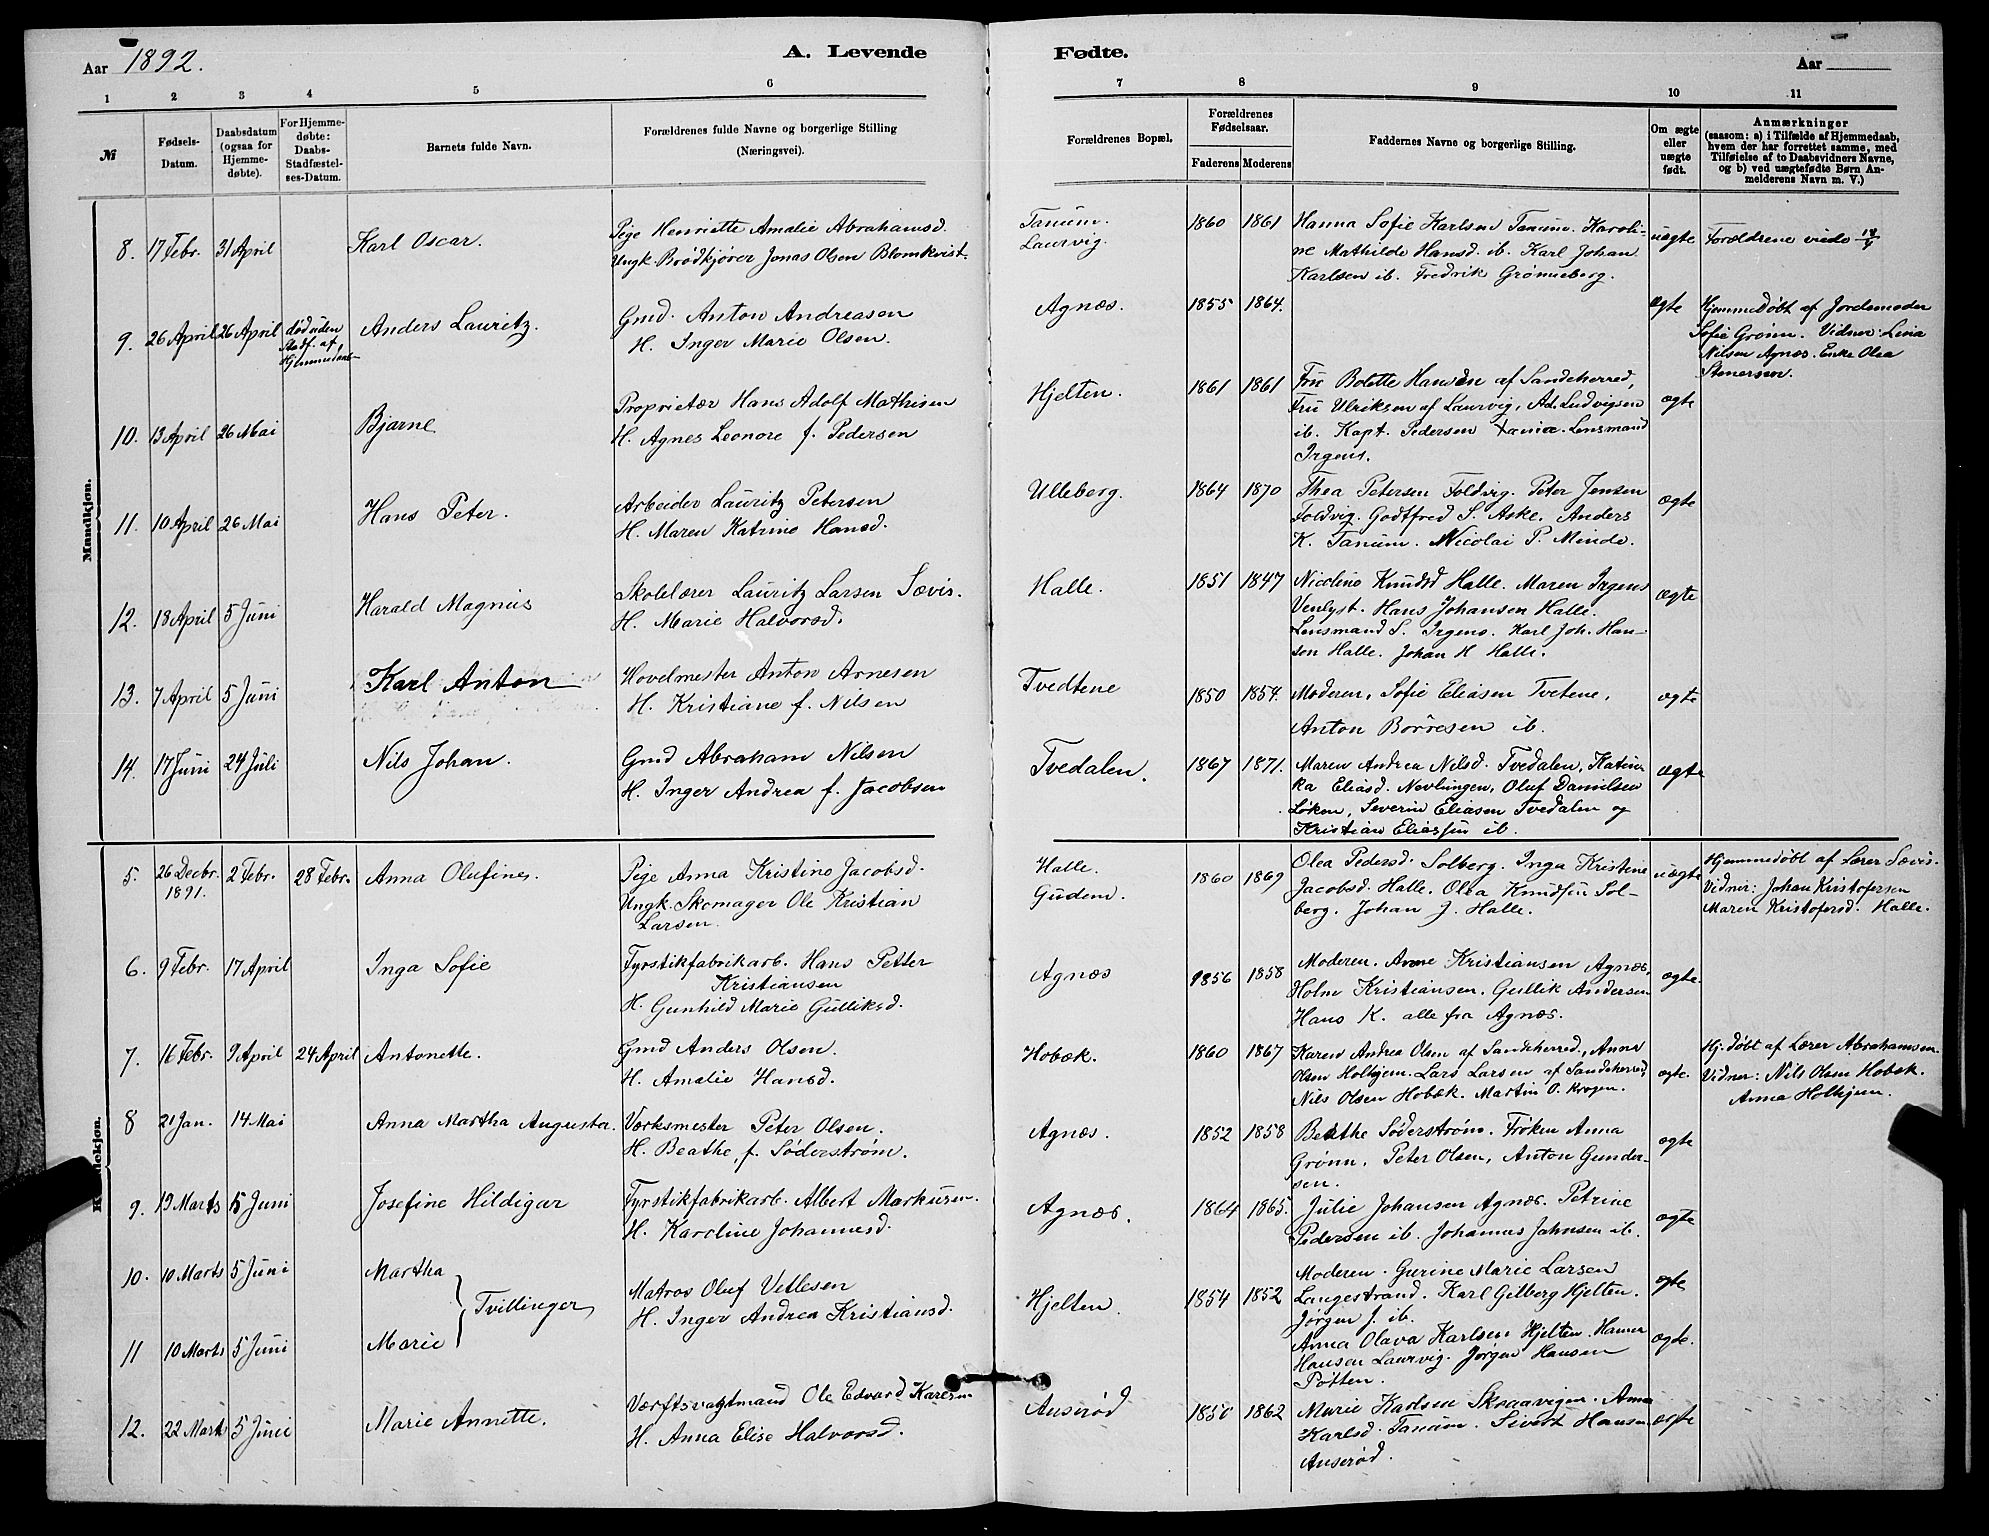 Aar 1892.
A. Levende
Fødte.
Aar
1 2 3 4 5 6 7 8 9 10 11
№
Fødsels-
Datum.
Daabsdatum
(ogsaa for
Hjemme-
døbte).
For Hjemme-
døbte:
Daabs-
Stadfæstel-
ses-Datum.
Barnets fulde Navn.
Forældrenes fulde Navne og borgerlige Stilling
(Næringsvei).
Forældrenes Bopæl.
Forældrenes
Fødselsaar.
Faderens Moderens
Faddernes Navne og borgerlige Stilling.
Om ægte
eller
uægte
født.
Anmærkninger
(saasom: a) i Tilfælde af Hjemmedaab,
hvem der har forrettet samme, med
Tilføielse af to Daabsvidners Navne,
og b) ved uægtefødte Børn An-
melderens Navn m. V.)
Mandkjøn.
8. 17 Febr. 31 April
Karl Oscar.
Pige Henriette Amalie Abrahamsd.
Ungk. Brødkjører Jonas Olsen Blomkvist.
Tanum.
Laurvig.
1860 1861
Hanna Sofie Karlsen Tanum. Karoli-
ne Mathilde Hansd. ib. Karl Johan
Karlsen ib. Fredrik Grønneberg.
uægte
Forældrene viede
9. 26 April 26 April
død uden
Stadf. af
Hjemmedaab
Anders Lauritz.
Gmd. Anton Andreasen
H. Inger Marie Olsen.
Agnæs.
1855 1864.
ægte
Hjemmedøbt af Jordemoder
Sofie Grønn. Vidner: Lina
Nilsen Agnæs. Enke Olea
Stenersen.
10. 13 April 26 Mai
Bjarne
Proprietær Hans Adolf Mathisen
H. Agnes Leonore f. Pedersen
Hjelten.
1861 1861
Fru Bolette Hansen af Sandeherred,
Fru Ulriksen af Laurvig, Ad. Ludvigsen
ib. Kapt. Pedersen Lensmand
Irgens.
ægte
11. 10 April 26 Mai
Hans Peter.
Arbeider Lauritz Petersen
H. Maren Katrine Hansd.
Ulleberg.
1864 1870
Thea Petersen Foldvig. Peter Jensen
Foldvig. Godtfred S. Aske. Anders
K. Tanum. Nicolai P. Minde.
ægte
12. 18 April 5 Juni
Harald Magnus
Skolelærer Lauritz Larsen Sævis.
H. Marie Halvorsd.
Halle.
1851 1847
Nicoline Knudsd Halle. Maren Irgens
Venlyst. Hans Johansen Halle.
Lensmand S. Irgens. Karl Joh. Han-
sen Halle. Johan H Halle.
ægte
13. 7 April 5 Juni
Karl Anton
Hovelmester Anton Arnesen
H. Kristiane f. Nilsen
Tvedtene
1850 1854.
Moderen, Sofie Eliasen Tvetene,
Anton Borresen ib.
ægte
14. 17 Juni 24 Juli
Nils Johan.
Gmd Abraham Nilsen
H. Inger Andrea f. Jacobsen
Tvedalen.
1867 1871.
Maren Andrea Nilsd. Tvedalen, Katin-
ka Eliasd. Nevlungen, Oluf Danielsen
Løken, Severin Eliasen Tvedalen og
Kristian Eliassen ib.
ægte
Kvindekjøn.
5. 26 Decbr. 2 Febr. 28 Febr.
1891.
Anna Olufine.
Pige Anna Kristine Jacobsd.
Ungk. Skomager Ole Kristian
Larsen.
Halle.
Gudem.
1860 1869
Olea Pedersd. Solberg. Inga Kristine
Jacobsd. Halle. Olea Knudsen Sol-
berg. Johan J. Halle.
uægte
Hjemmedøbt af Lærer Sævis.
Vidner: Johan Kristofersen
Maren Kristofersd. Halle.
6. 9 Febr. 17 April
Inga Sofie
Fyrstikfabrikarb. Hans Petter
Kristiansen
H. Gunhild Marie Gulliksd.
Agnæs
1856 1858
Moderen. Anne Kristiansen Agnæs,
Holm Kristiansen. Gullik Andersen
Hans K. alle fra Agnæs.
ægte.
7. 16 Febr. 9 April 24 April
Antonette.
Gmd Anders Olsen.
H. Amalie Hansd.
Hobæk.
1860 1867
Karen Andrea Olsen af Sandeherred, Anna
Olsen Holhjem. Lars Larsen af Sandeherred,
Nils Olsen Hobæk. Martin O. Krogen.
ægte.
Hj. døbt af Lærer Abrahamsen.
Vidner: Nils Olsen Hobek.
Anna Holhjem.
8 21 Jan. 14 Mai
Anna Martha Augusta.
Værksmester Peter Olsen.
H. Beathe, f. Søderstrøm.
Agnæs.
1852 1858
Beathe Søderstrøm. Frøken Anna
Grønn. Peter Olsen, Anton Gunder-
sen.
ægte
9. 19 Marts 5 Juni
Josefine Hildigar
Fyrstikfabrikarb. Albert Markusen.
H. Karoline Johannesd.
Agnæs.
1864 1865.
Julie Johansen Agnæs. Petrine
Pedersen ib. Johannes Johnsen ib.
ægte
10. 10 Marts 5 Juni
Martha
Tvillinger
Matros Oluf Vetlesen
H. Inger Andrea Kristiansd.
Hjelten.
1854 1852
Moderen. Gurine Marie Larsen
Langestrand. Karl Gilberg Hjelten.
Jørgen J. ib.
ægte
11 10 Marts 5 Juni
Marie
Anna Olava Karlsen Hjelten.
Hansen Laurvig. Jørgen Hansen
Potten.
ægte.
12. 22 Marts 5 Juni
Marie Annette.
Værftsvagtmand Ole Edvard Karlsen
H. Anna Elise Halvorsd.
Anserød
1850 1862
Marie Karlsen Skraavigen. Anna
Karlsd. Tanum. Sivert Hansen
Anserød.
ægte